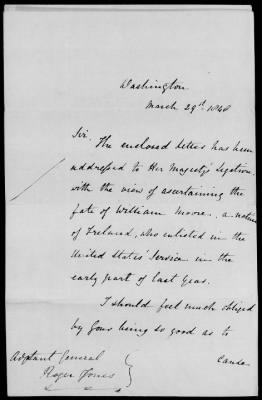 Washington
March 29th 1848
Sir.
The enclosed letter has been
addressed to Her Majesty's Legation
with the view of ascertaining the
fate of William Moore, a native
of Ireland, who enlisted in the
United States' Service in the
early part of last year.
I should feel much obliged
by your being so good as to
cause
Adjutant General
Roger Jones